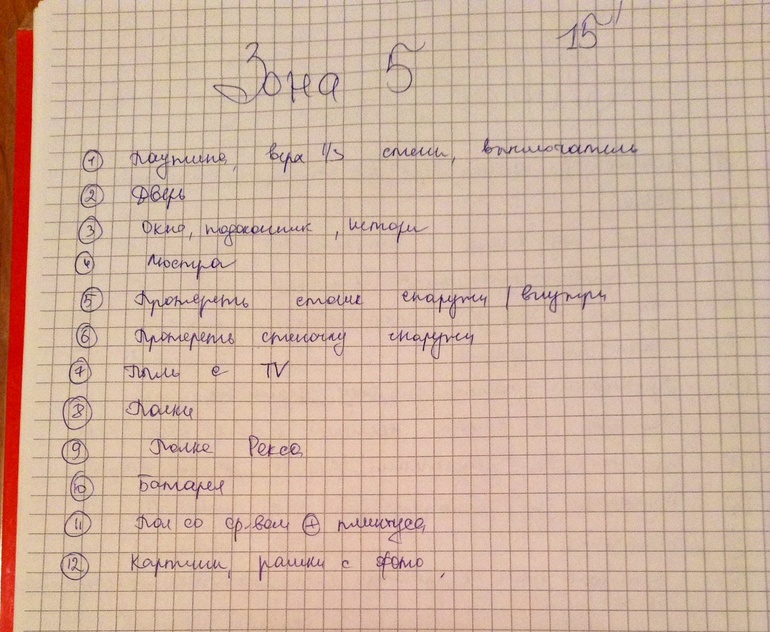 15'
Зона 5
1 Паутина, верх 1/3 стены, выключатель
2 Дверь
3 Окно, подоконник, шторы
4 Люстра
5 Протереть снаружи / внутри
6 Протереть стеночку снаружи
7 Пыль с TV
8 Полки
9 Полка Рекса
10 Батарея
11 Пол со ср-вом + плинтуса
12 Картины, рамки с фото,